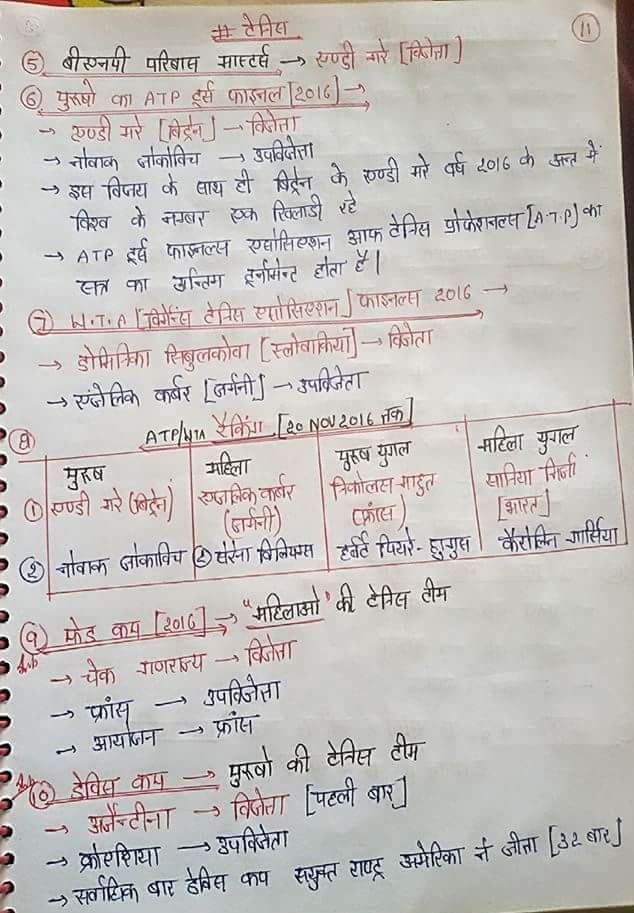 # टेनिस
11
⑤ बीएनपी परिबास मास्टर्स → एण्डी मरे [विजेता]
⑥ पुरुषो का ATP टूर्स फाइनल [2016] →
→ एण्डी मरे [ब्रिटेन] → विजेता
→ नोवाक जोकोविच → उपविजेता
→ इस विजय के साथ ही ब्रिटेन के एण्डी मरे वर्ष 2016 के अन्त में
विश्व के नम्बर एक खिलाडी रहे
→ ATP टूर्स फाइनल्स एसोसिएशन आफ टेनिस प्रोफेशनल्स [A.T.P] का
सत्र का अन्तिम टूर्नामेन्ट होता है।
⑦ W.T.A [विमेन्स टेनिस एसोसिएशन] फाइनल्स 2016 →
→ डोमिनिका सिबुलकोवा [स्लोवाकिया] → विजेता
→ एंजेलिक कर्बर [जर्मनी] → उपविजेता
⑧ ATP/WTA रैकिंग [20 NOV 2016 तक]
पुरुष महिला पुरुष युगल महिला युगल
① एण्डी मरे (ब्रिटेन) एन्जलिक कर्बर (जर्मनी) निकोलस माहुत (फ्रांस) सानिया मिर्जा [भारत]
② नोवाक जोकाविच ② सेरेना विलियम्स हर्बर्ट पियरे-हुगुस कैरोलिन गार्सिया
⑨ फेड कप [2016] → "महिलाओ" की टेनिस टीम
→ चेक गणराज्य → विजेता
→ फ्रांस → उपविजेता
→ आयोजन → फ्रांस
⑩ डेविस कप → पुरुषो की टेनिस टीम
→ अर्जेन्टीना → विजेता [पहली बार]
→ क्रोएशिया → उपविजेता
→ सर्वाधिक बार डेविस कप सयुक्त राष्ट्र अमेरिका ने जीता [32 बार]